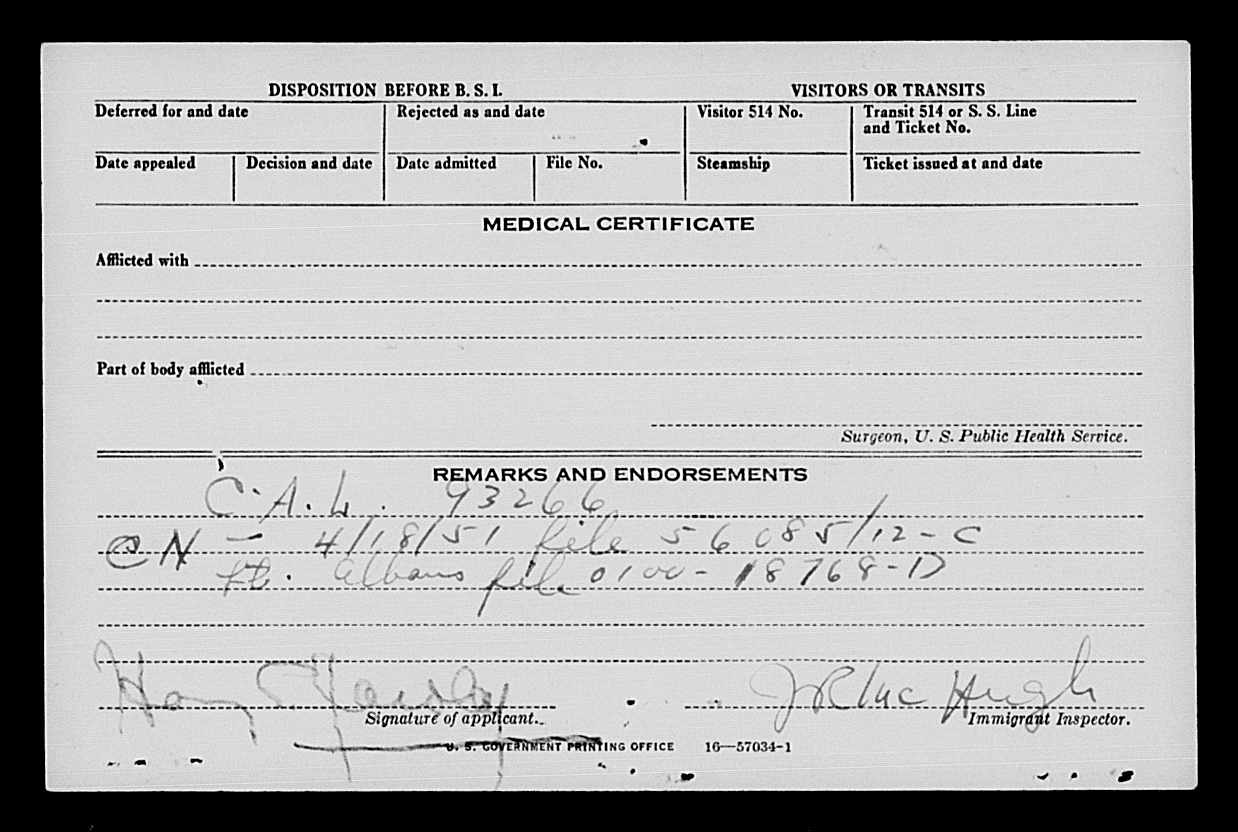 DISPOSITION BEFORE B. S. I.
VISITORS OR TRANSITS
Deferred for and date
Rejected as and date
Visitor 514 No.
Transit 514 or S. S. Line
and Ticket No.
Date appealed
Decision and date
Date admitted
File No.
Steamship
Ticket issued at and date
MEDICAL CERTIFICATE
Afflicted with
Part of body afflicted
Surgeon, U. S. Public Health Service.
REMARKS AND ENDORSEMENTS
C. A. L. 93266
CN — 4/18/51 file 56085/12-C
St. Albans file 0100-18768-D
Harry
Mc Hugh
Signature of applicant.
Immigrant Inspector.
U. S. GOVERNMENT PRINTING OFFICE 16—57034-1